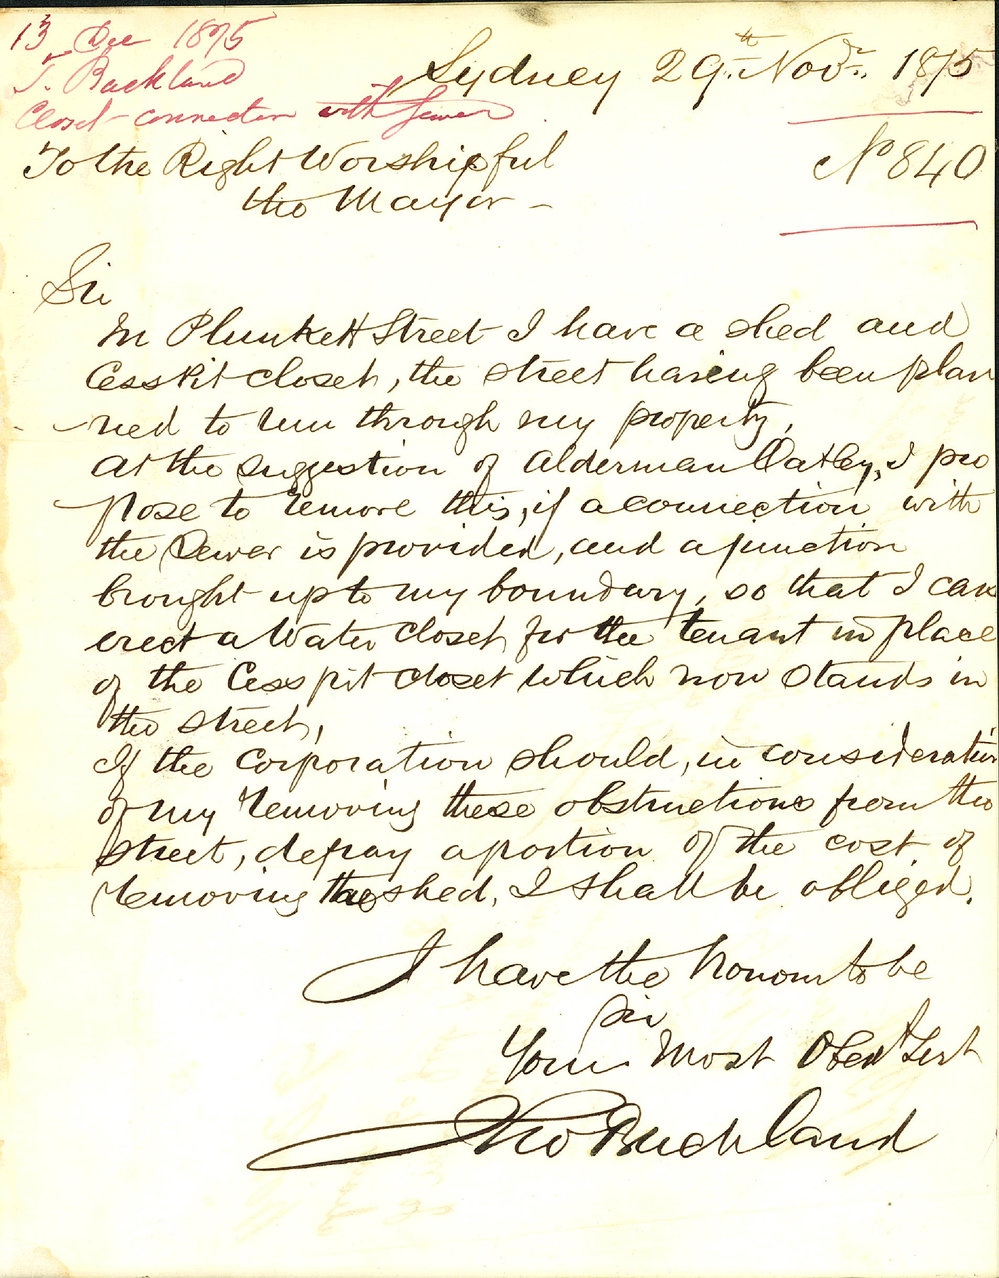 13 Dec 1875
T. Buckland
Closet connection with Sewer
Sydney 29th Novr. 1875
No 840
To the Right Worshipful
the Mayor -
Sir
In Plunkett Street I have a shed and
Cesspit closet, the street having been plan
ned to run through my property,
At the suggestion of Alderman Oatley, I pro
pose to remove this, if a connection with
the Sewer is provided, and a junction
brought up to my boundary, so that I can
erect a Water closet for the tenant in place
of the Cesspit closet which now stands in
the street,
If the Corporation should, in consideration
of my removing these obstructions from the
street, defray a portion of the cost of
removing the shed, I shall be obliged.
I have the honour to be
Sir
Your Most Obedt Servt
Thos Buckland